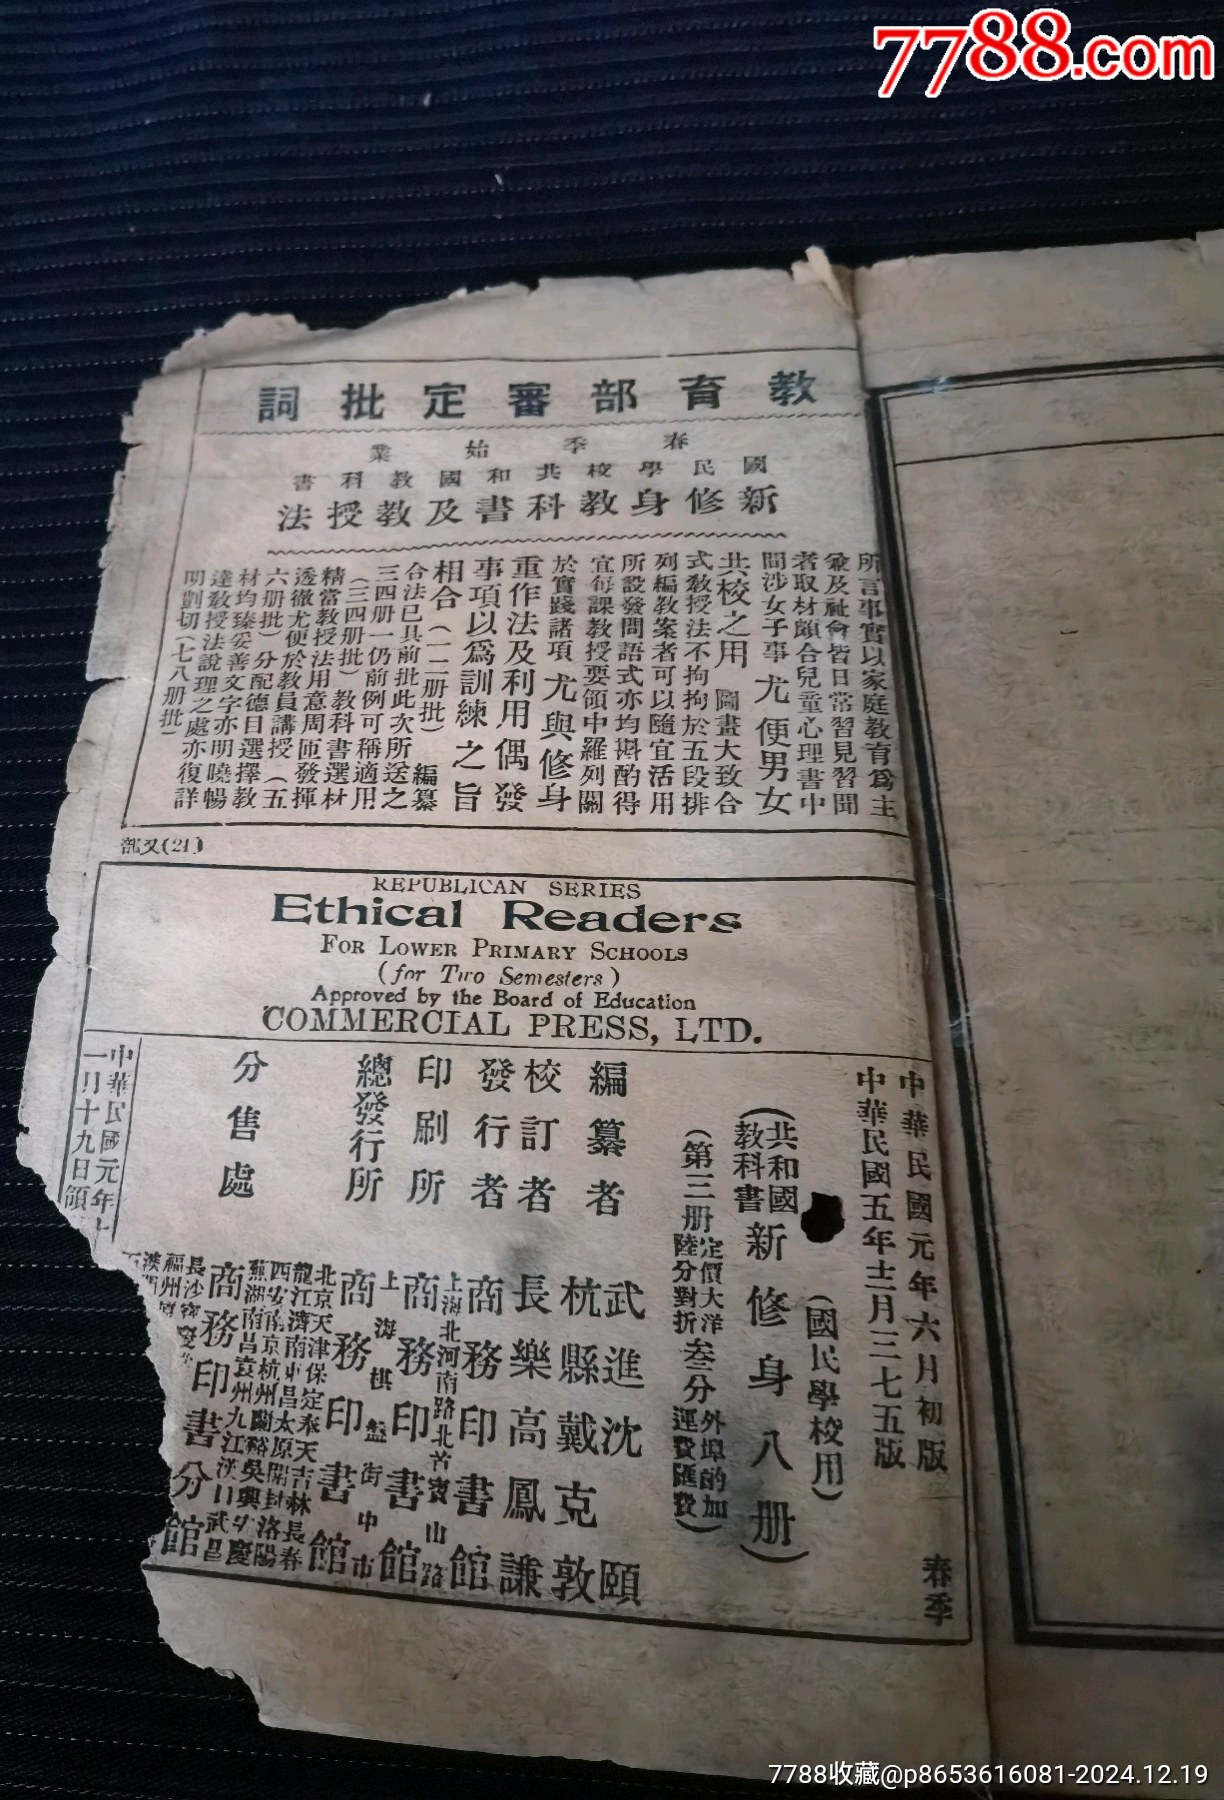 7788.com
教育部審定批詞
春季始業
國民學校共和國教科書
新修身教科書及教授法
所言事實以家庭教育為主
兼及社會皆日常習見習聞
者取材頗合兒童心理書中
間涉女子事尤便男女
共校之用 圖畫大致合
式教授法不拘拘於五段排
列編教案者可以隨宜活用
所設發問語式亦均斟酌得
宜每課教授要領中羅列關
於實踐諸項尤與修身
重作法及利用偶發
事項以為訓練之旨
相合(一二册批) 編纂
合法已具前批此次所送之
三四册一仍前例可稱適用
(三四册批) 教科書選材
精當教授法用意周匝發揮
透徹尤便於教員講授(五
六册批) 分配德目選擇教
材均臻妥善文字亦明曉暢
達教授法說理之處亦復詳
明剴切(七八册批)
部又(21)
REPUBLICAN SERIES
Ethical Readers
FOR LOWER PRIMARY SCHOOLS
(for Two Semesters)
Approved by the Board of Education
COMMERCIAL PRESS, LTD.
中華民國元年六月初版
中華民國五年十二月三七五版
春季
(國民學校用)
(共和國教科書新修身八册)
(第三册定價大洋叁分外埠酌加
陸分對折運費匯費)
編纂者 武進沈頤
杭縣戴克敦
校訂者 長樂高鳳謙
發行者 商務印書館
印刷所 上海北河南路北首寶山路
商務印書館
總發行所 上海棋盤街中市
商務印書館
分售處 北京天津保定奉天吉林長春
龍江濟南東昌太原開封洛陽
西安南京杭州蘭谿吳興安慶
蕪湖南昌袁州九江漢口武昌
商務印書分館
長沙寶慶
福州
中華民國元年十
一月十九日領
7788收藏@p8653616081-2024.12.19